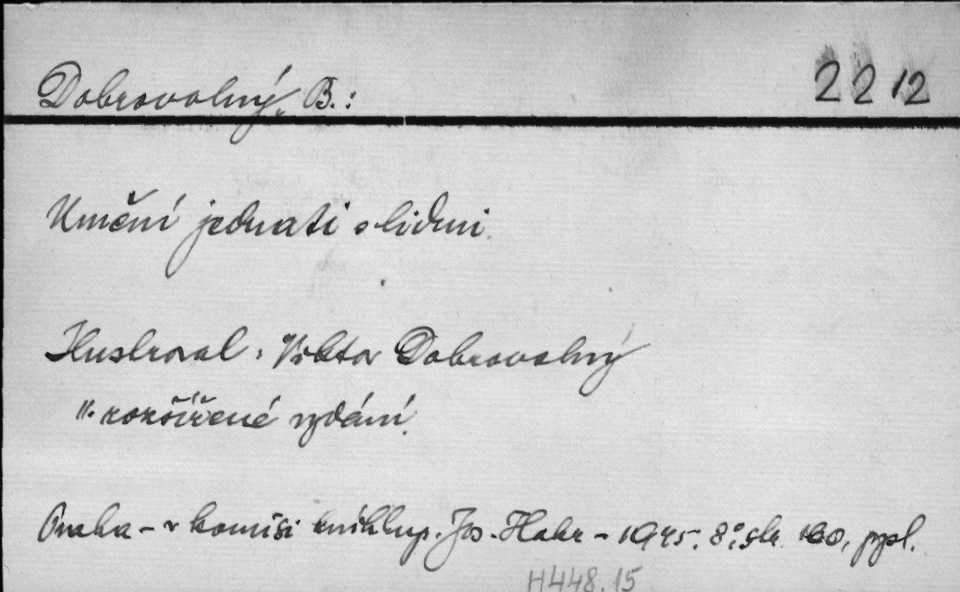 Dobrovolný, B.: 2212
Umění jednati s lidmi.
Ilustroval: Viktor Dobrovolný
II. rozšířené vydání.
Praha - v komisi knihkup. Jos. Hokr - 1945. 8°, str. 160, ppl.
H448.15